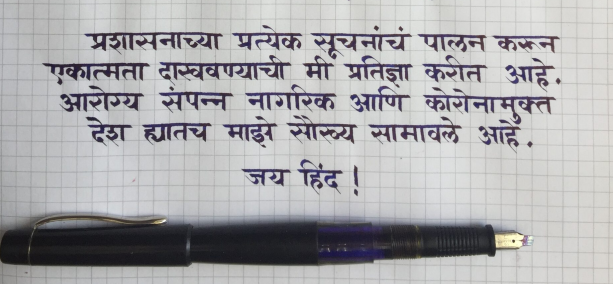 प्रशासनाच्या प्रत्येक सूचनांचं पालन करून
एकात्मता दाखवण्याची मी प्रतिज्ञा करीत आहे.
आरोग्य संपन्न नागरिक आणि कोरोनामुक्त
देश ह्यातच माझे सौख्य सामावले आहे.
जय हिंद !